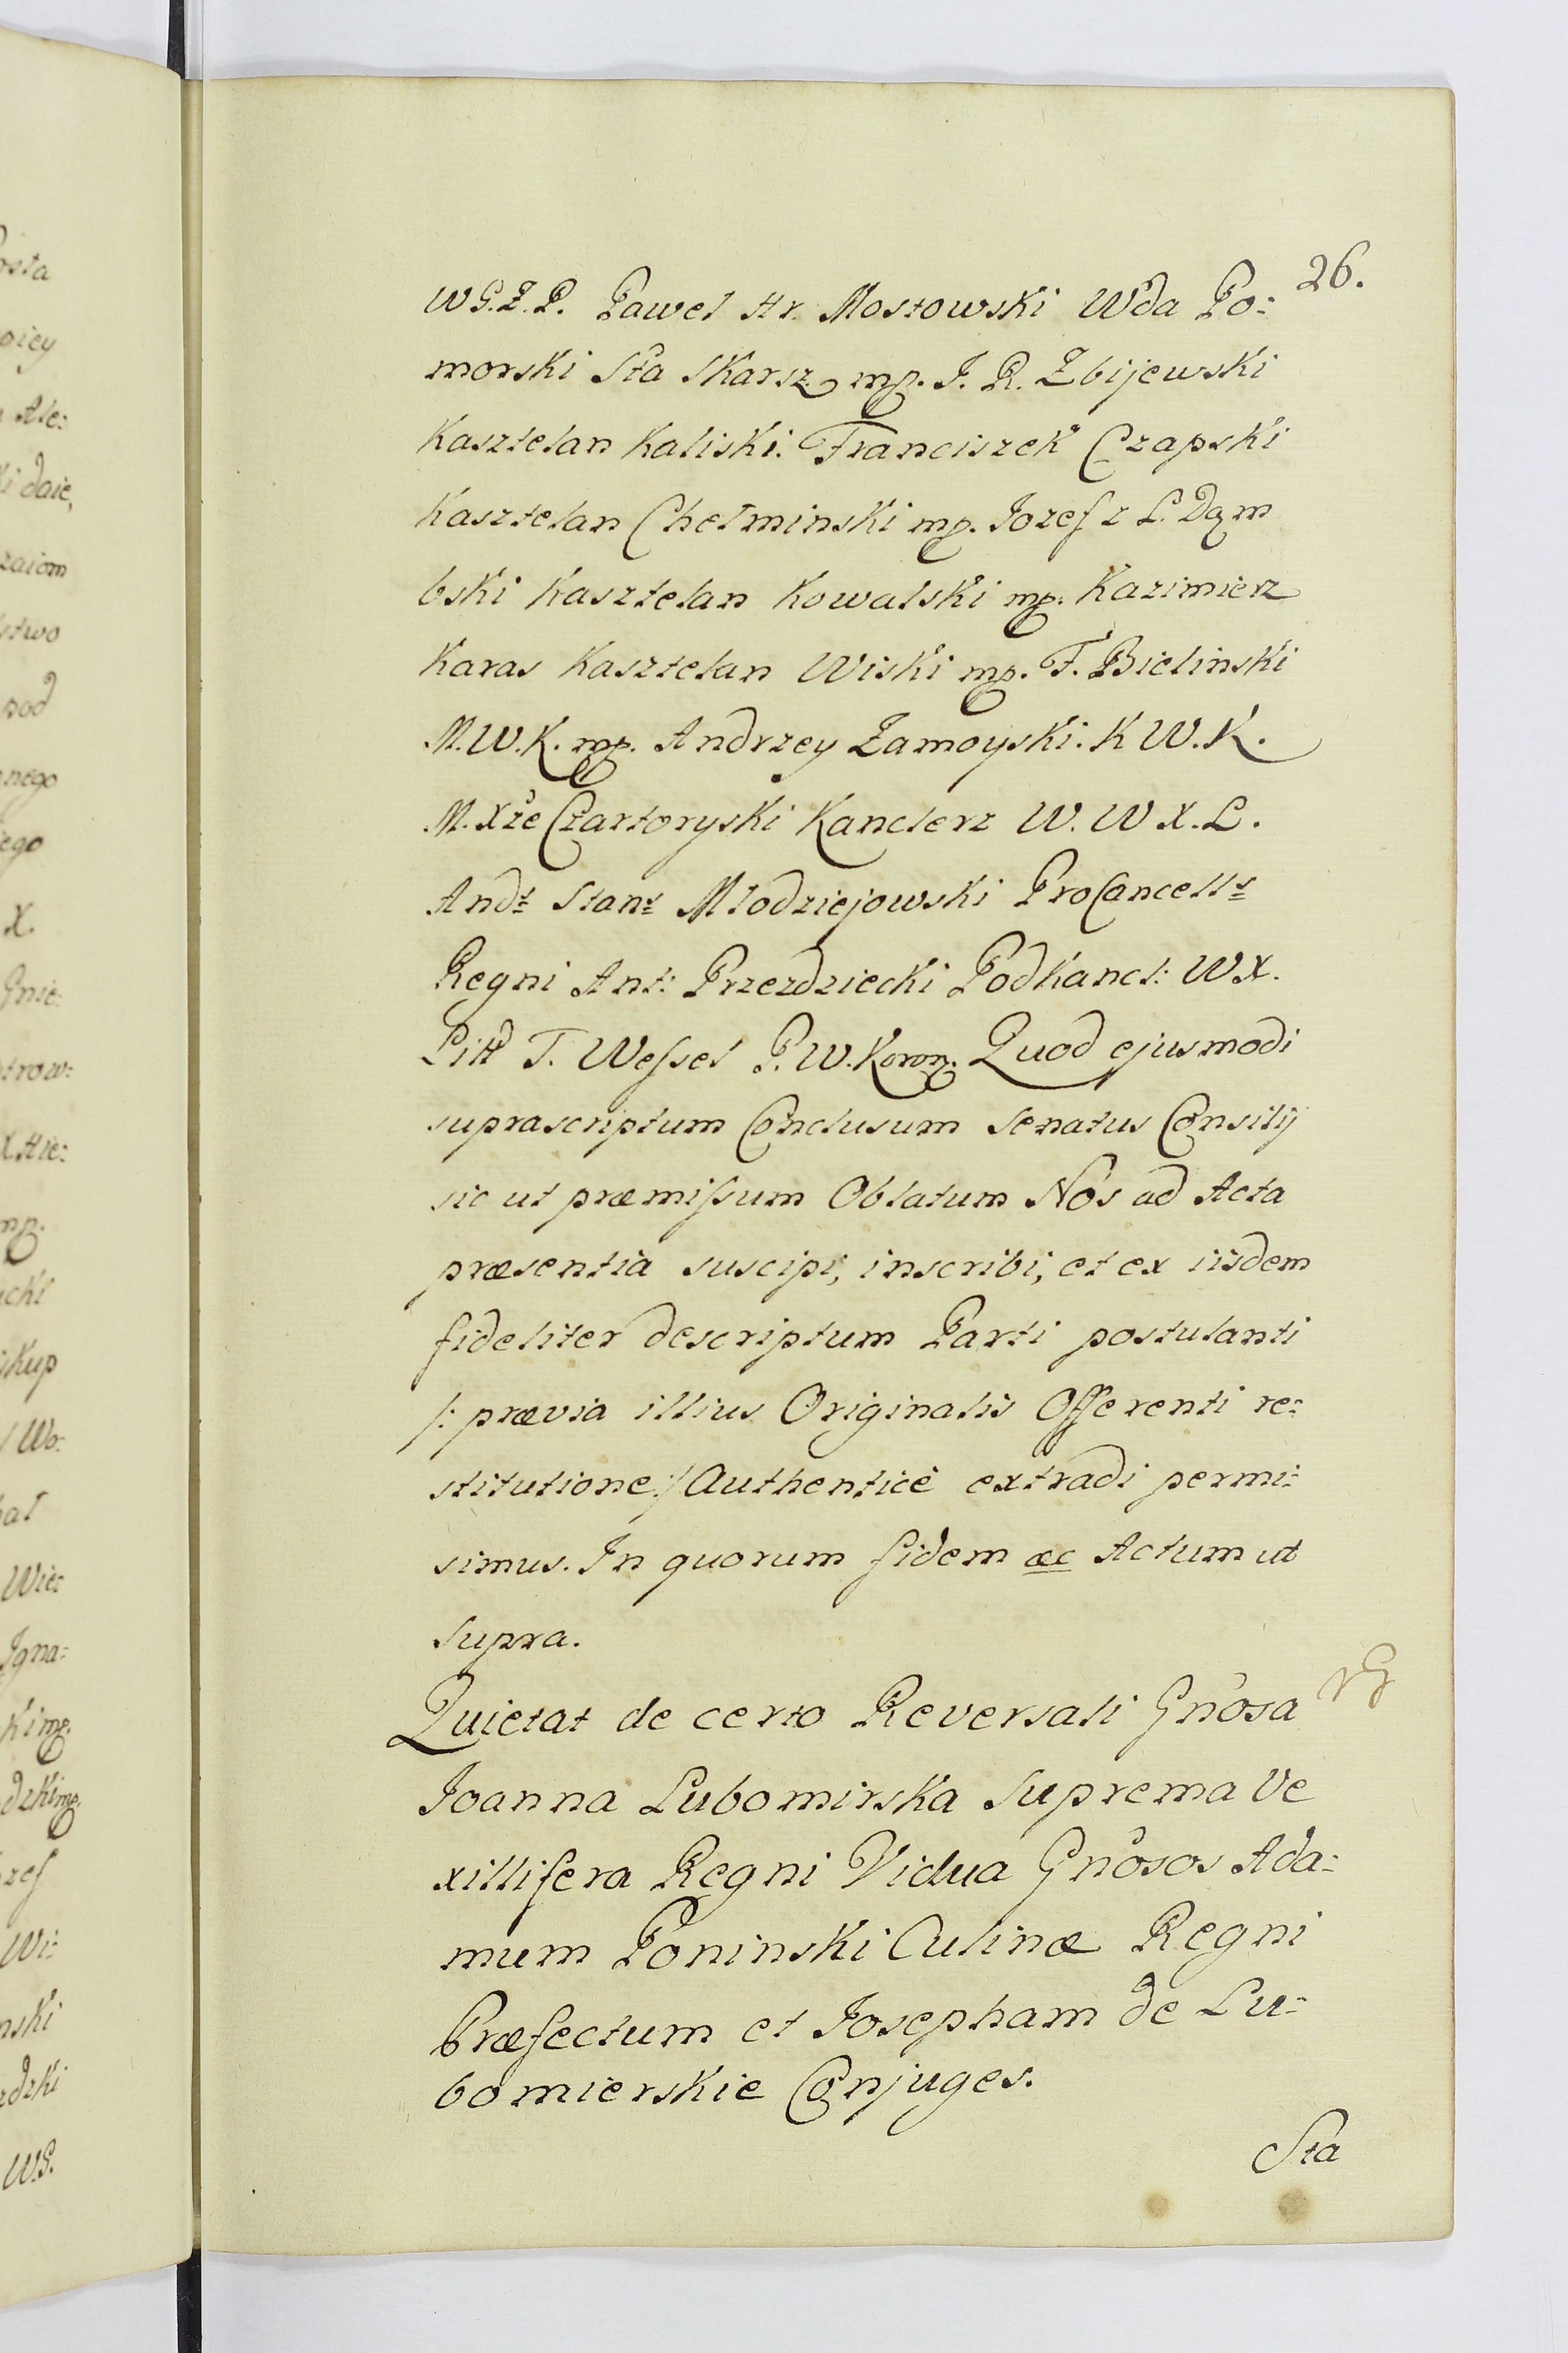 26.
W G. Z. P. Paweł Hr. Mostowski Wda Po:
morski Sta Skarsz mp. J. R. Zbijewski
Kasztelan Kaliski. Franciszek Czapski
Kasztelan Chełminski mp. Jozef z L. Dąm
bski Kasztelan Kowalski mp. Kazimierz
Karas Kasztelan Wiski mp. F. Bielinski
M. W. K. mp. Andrzey Zamoyski. K W. K.
M. Xże Czartoryski Kanclerz W. W X. L.
Andr Stans Młodziejowski ProCancells
Regni Ant: Przezdziecki Podkancl: W X.
Litt T. Wessel P. W. Koron. Quod ejusmodi
suprascriptum Conclusum Senatus Consilij
sic ut præmissum Oblatum Nos ad Acta
præsentia suscipi, inscribi, et ex iisdem
fideliter descriptum Parti postulanti
/: prævia illius Originalis Offerenti re:
stitutione :/ Authenticè extradi permi:
simus. In quorum fidem &c Actum ut
supra.
Quietat de certo Reversali Gnosa
Joanna Lubomirska Suprema Ve
xillifera Regni Vidua Gnosos Ada:
mum Poninski Culinæ Regni
Præfectum et Josepham de Lu:
bomierskie Conjuges.
Sta
osta
oiey
Ale:
ki daie,
zaiom
stwo
pod
nnego
iego
X.
Gnie:
strow:
X Hie:
mp.
icki
skup
Wo:
hał
Wie:
Igna:
ki mp.
dzki mp.
zef
Wi:
nski
dzki
W.G.